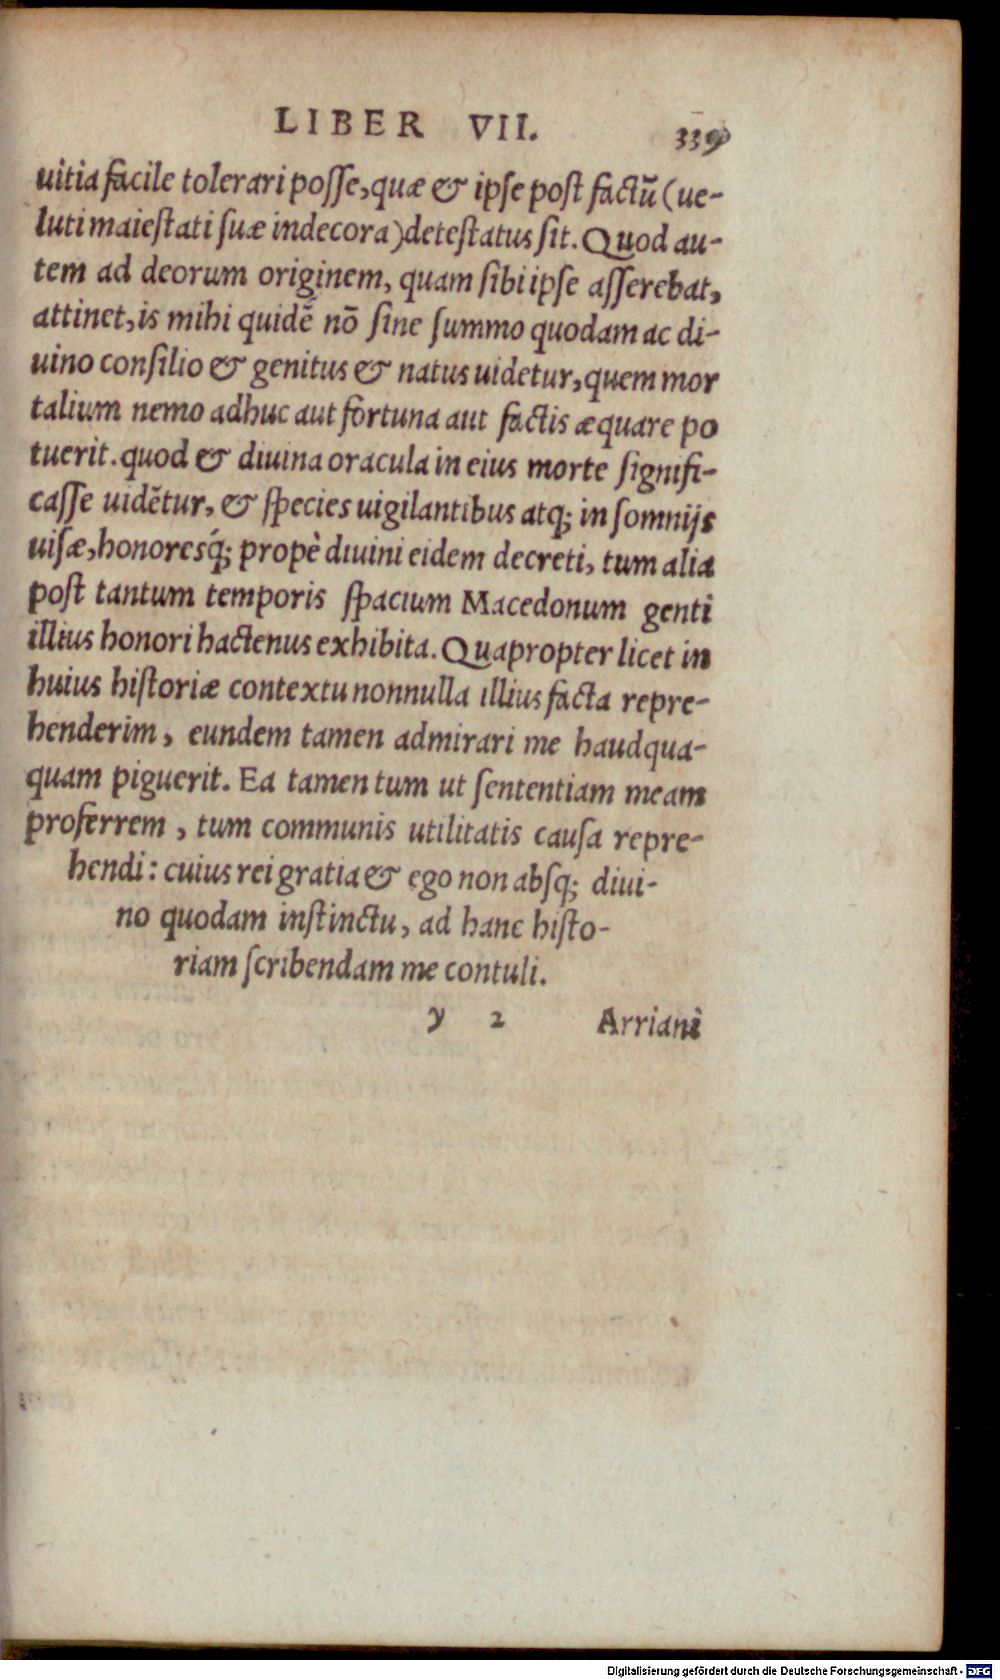 LIBER VII. 339
uitia facile tolerari posse, quæ & ipse post factũ (ue-
luti maiestati suæ indecora) detestatus sit. Quod au-
tem ad deorum originem, quam sibi ipse asserebat,
attinet, is mihi quidẽ nõ sine summo quodam ac di-
uino consilio & genitus & natus uidetur, quem mor
talium nemo adhuc aut fortuna aut factis æquare po
tuerit. quod & diuina oracula in eius morte signifi-
casse uidẽtur, & species uigilantibus atq; in somnijs
uisæ, honoresq́; propè diuini eidem decreti, tum alia
post tantum temporis spacium Macedonum genti
illius honori hactenus exhibita. Quapropter licet in
huius historiæ contextu nonnulla illius facta repre-
henderim, eundem tamen admirari me haudqua-
quam piguerit. Ea tamen tum ut sententiam meam
proferrem, tum communis utilitatis causa repre-
hendi: cuius rei gratia & ego non absq; diui-
no quodam instinctu, ad hanc histo-
riam scribendam me contuli.
y 2 Arriani
Digitalisierung gefördert durch die Deutsche Forschungsgemeinschaft - DFG